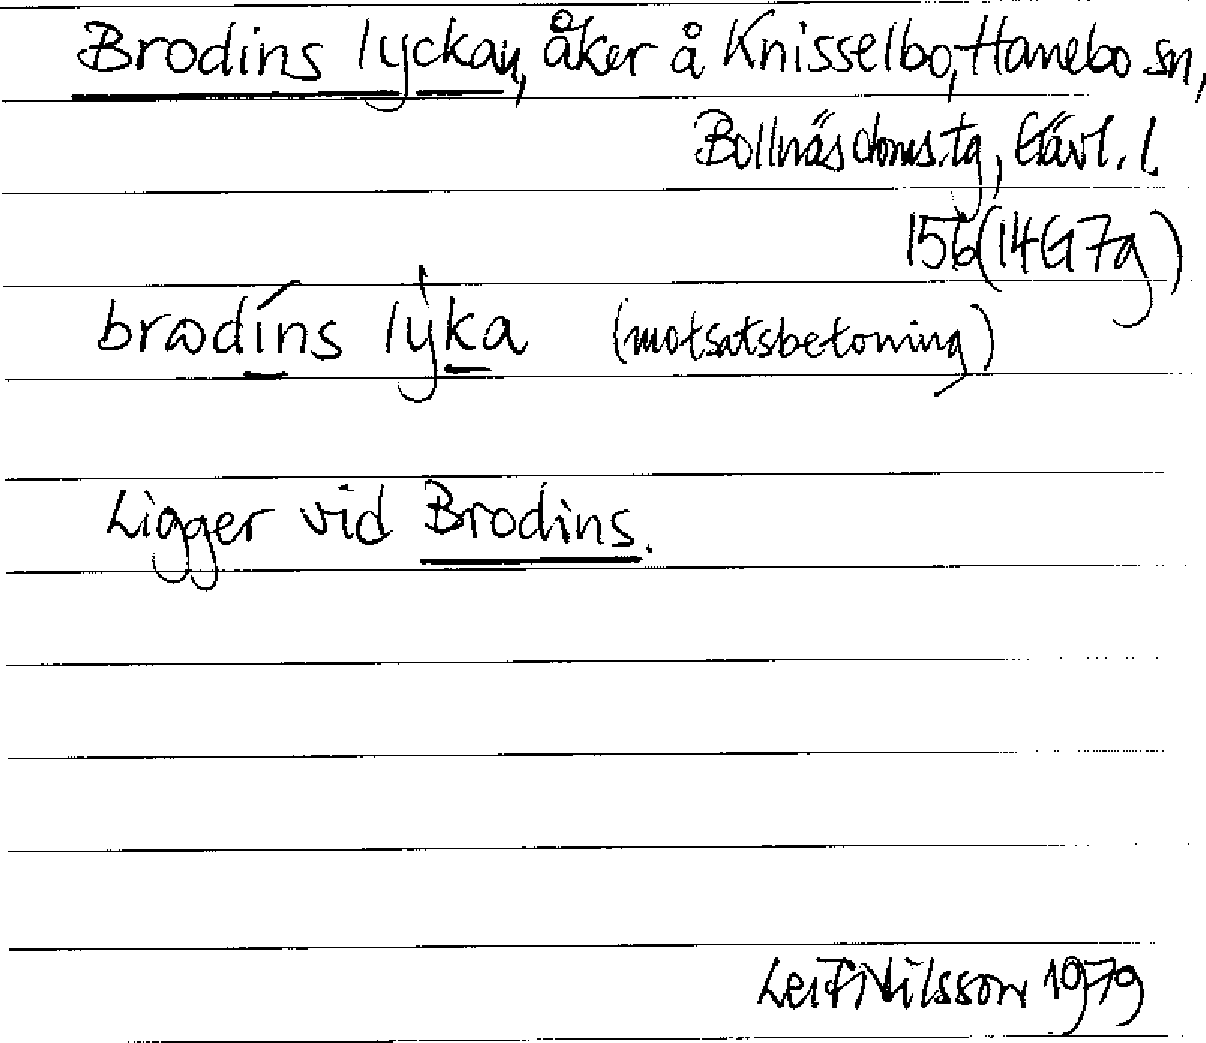 Brodins lyckan, åker å Knisselbo, Hanebo sn,
Bollnäs doms.tg, Gävl. l.
156 (14G7g)
brωdíns lýka (motsatsbetoning)
Ligger vid Brodins.
Leif Nilsson 1979